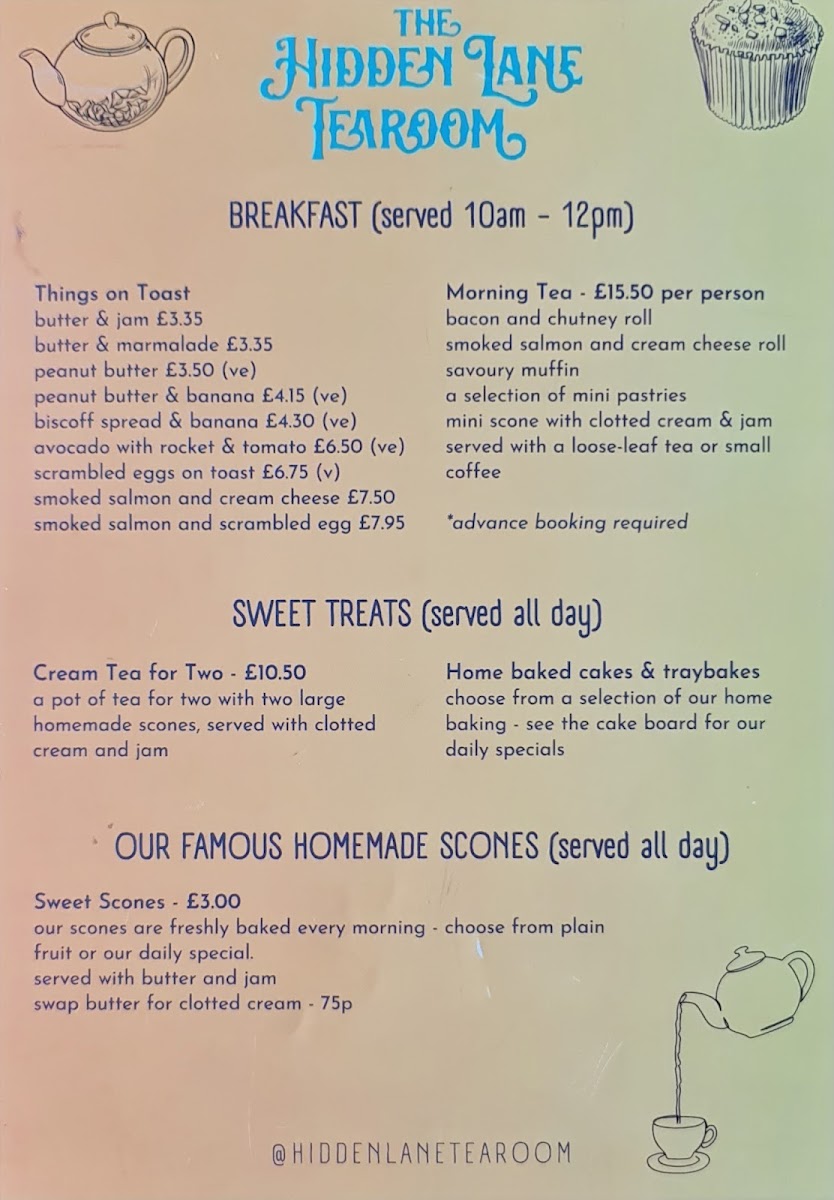 THE
HIDDEN LANE
TEAROOM
BREAKFAST (served 10am - 12pm)
Things on Toast
butter & jam £3.35
butter & marmalade £3.35
peanut butter £3.50 (ve)
peanut butter & banana £4.15 (ve)
biscoff spread & banana £4.30 (ve)
avocado with rocket & tomato £6.50 (ve)
scrambled eggs on toast £6.75 (v)
smoked salmon and cream cheese £7.50
smoked salmon and scrambled egg £7.95
Morning Tea - £15.50 per person
bacon and chutney roll
smoked salmon and cream cheese roll
savoury muffin
a selection of mini pastries
mini scone with clotted cream & jam
served with a loose-leaf tea or small
coffee
*advance booking required
SWEET TREATS (served all day)
Cream Tea for Two - £10.50
a pot of tea for two with two large
homemade scones, served with clotted
cream and jam
Home baked cakes & traybakes
choose from a selection of our home
baking - see the cake board for our
daily specials
OUR FAMOUS HOMEMADE SCONES (served all day)
Sweet Scones - £3.00
our scones are freshly baked every morning - choose from plain
fruit or our daily special.
served with butter and jam
swap butter for clotted cream - 75p
@HIDDENLANETEAROOM